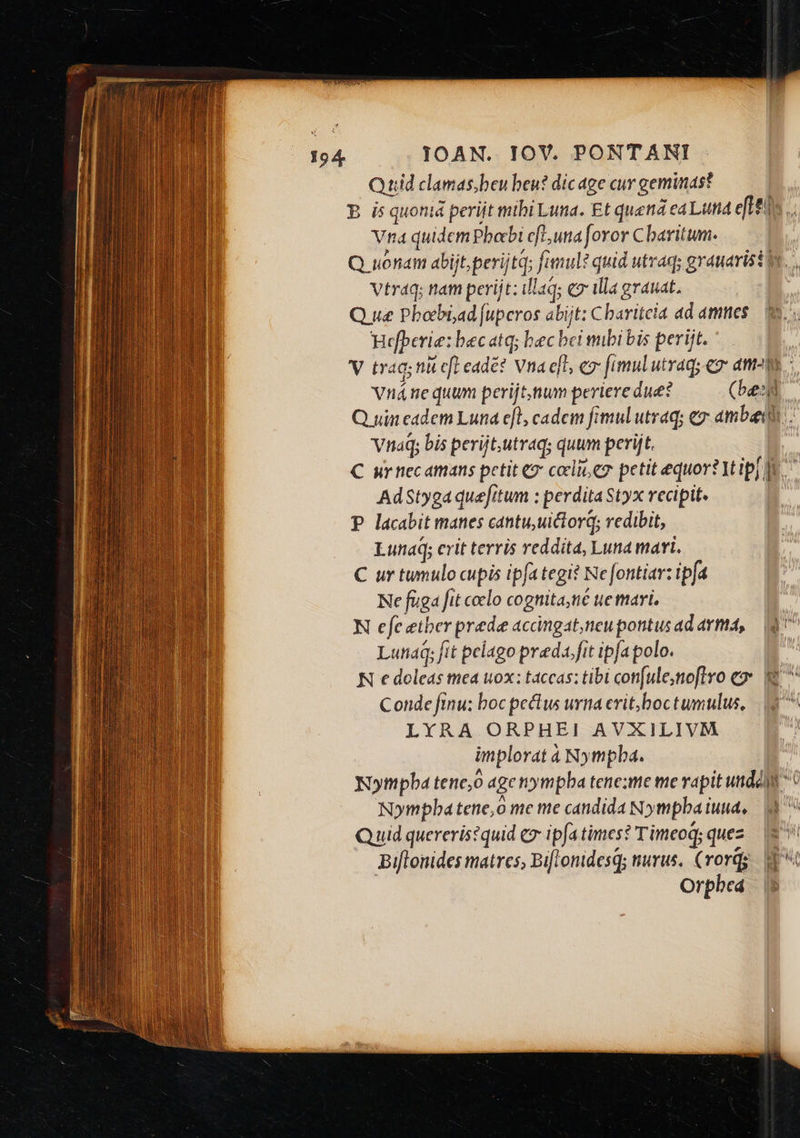 194 IOAN. IOV. PONTANI
Quid clamas, heu heu? dic age cur geminas?
B is quoniā perijt mihi Luna. Et quænā ea Luna est?
Vna quidem Phœbi est, una soror Charitum.
Q uónam abijt, perijtq́; simul? quid utraq; grauaris?
Vtraq; nam perijt: illaq́; & illa grauat.
Q uæ Phœbi, ad superos abijt: Chariteia ad amnes
Hesperiæ: hæc atq; hæc hei mihi bis perijt.
V traq; nū est eadē? Vna est, & simul utraq; & am-
Vnā ne quum perijt, num periere duæ? (bæ:
Q uin eadem Luna est, eadem simul utraq; & ambæ:
Vnaq́; bis perijt, utraq; quum perijt.
C ur nec amans petit & cœlū, & petit æquor? Vt ips
Ad Styga quæsitum : perdita Styx recipit.
P lacabit manes cantu, uictorq́; redibit,
Lunaq́; erit terris reddita, Luna mari.
C ur tumulo cupis ipsa tegi? Ne sontiar: ipsa
Ne fuga sit cœlo cognita, né ue mari.
N e se æther prædæ accingat, neu pontus ad arma,
Lunaq́; sit pelago præda, sit ipsa polo.
N e doleas mea uox: taceas: tibi consule, nostro &
Conde sinu: hoc pectus urna erit, hoc tumulus,
LYRA ORPHEI AVXILIVM
implorat à Nympha.
Nympha tene, ô age nympha tene: me me rapit undā
Nympha tene, ô me me candida Nympha iuua,
Q uid quereris? quid & ipsa times? Timeoq́; quez
Bistonides matres, Bistonidesq́; nurus. (rorq́;
Orphea